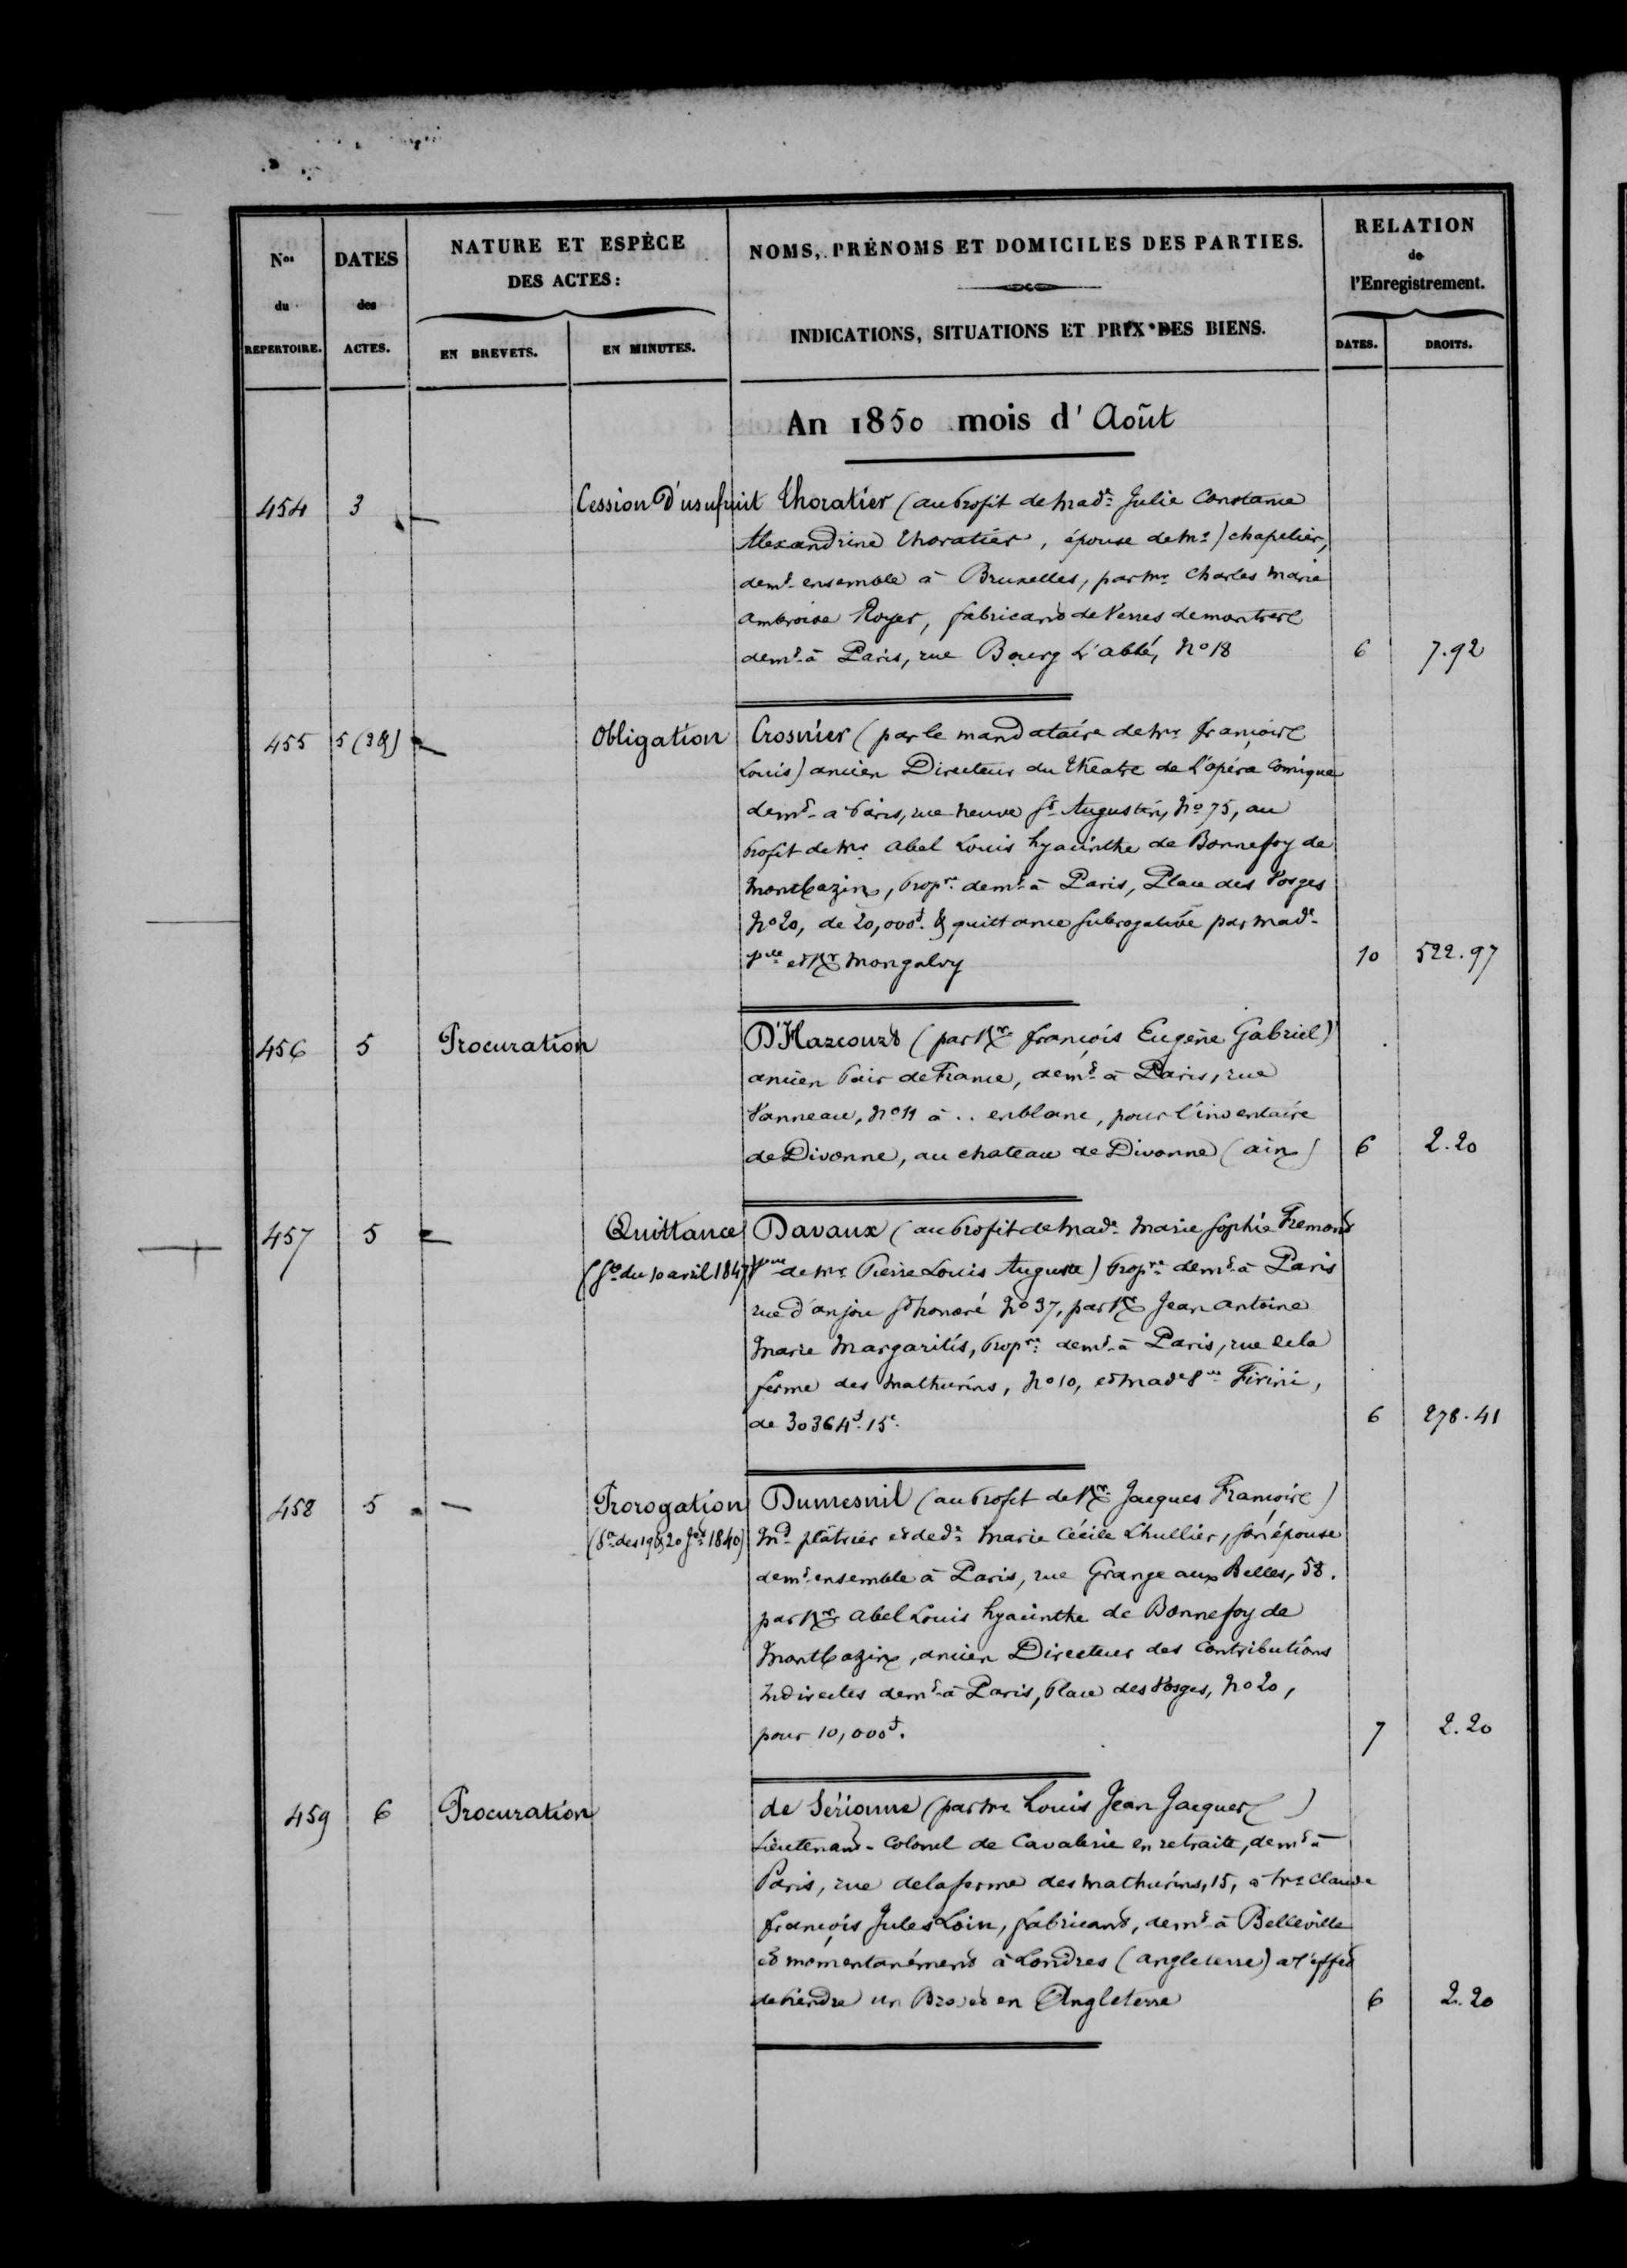 Nos
du
RÉPERTOIRE.
DATES
des
ACTES.
NATURE ET ESPÈCE
DES ACTES:
EN BREVETS.
EN MINUTES.
NOMS, PRÉNOMS ET DOMICILES DES PARTIES.
INDICATIONS, SITUATIONS ET PRIX DES BIENS.
RELATION
de
l'Enregistrement.
DATES.
DROITS.
An 1850 mois d'Août
454 3 — Cession D'usufruit Thoratier (au profit de Made Julie Constance
Alexandrine Thoratier, épouse de Mr) chapelier,
demt ensemble à Bruxelles, par Mr Charles Marie
Ambroise Royer, fabricant de Verres de montres
demt à Paris, rue Bourg L'abbé, No 18 6 7.92
455 5 (3&) — Obligation Crosnier (par le mandataire de Mr François
Louis) ancien Directeur du Théatre de L'opéra Comique
demt à Paris, rue neuve St Augustin, No 75, au
profit de Mr Abel Louis hyacinthe de Bonnefoy de
Montbazin, propre demt à Paris, Place des Vosges
No 20, de 20,000f. & quittance subrogative par Made
Vve et Mr Mongalvy 10 522.97
456 5 Procuration D'Harcourt (par Mr françois Eugène Gabriel)
ancien Pair de France, demt à Paris, rue
Vanneau, No 11 à .. en blanc, pour l'inventaire
de Divonne, au chateau de Divonne (ain) 6 2.20
457 5 — Quittance Davaux (au profit de Made Marie Sophie Fremont
(Se du 10 avril 1847) Veuve de Mr Pierre Louis Auguste) propre demt à Paris
rue d'anjou St honoré No 37, par Mr Jean Antoine
Marie Margaritis, propre demt à Paris, rue de la
ferme des Mathurins, No 10, et Made Vve Firini,
de 30364f. 15c. 6 278.41
458 5 — Prorogation Dumesnil (au profit de Mr Jacques François)
(des 19 & 20 1840) Md plâtrier et de de Marie Cécile Lhullier, son épouse
demt ensemble à Paris, rue Grange aux Belles, 58.
par Mr Abel Louis hyacinthe de Bonnefoy de
Montbazin, ancien Directeur des Contributions
Indirectes demt à Paris, Place des Vosges, No 20,
pour 10,000f. 7 2.20
459 6 Procuration de Sérionne (par Mr Louis Jean Jacques)
Lieutenant-Colonel de Cavalerie en retraite, demt à
Paris, rue de la ferme des Mathurins, 15, à Mr Claude
françois Jules Loin, fabricant, demt à Belleville
et momentanément à Londres (angleterre) à l'effet
de prendre un Brevet en Angleterre 6 2.20